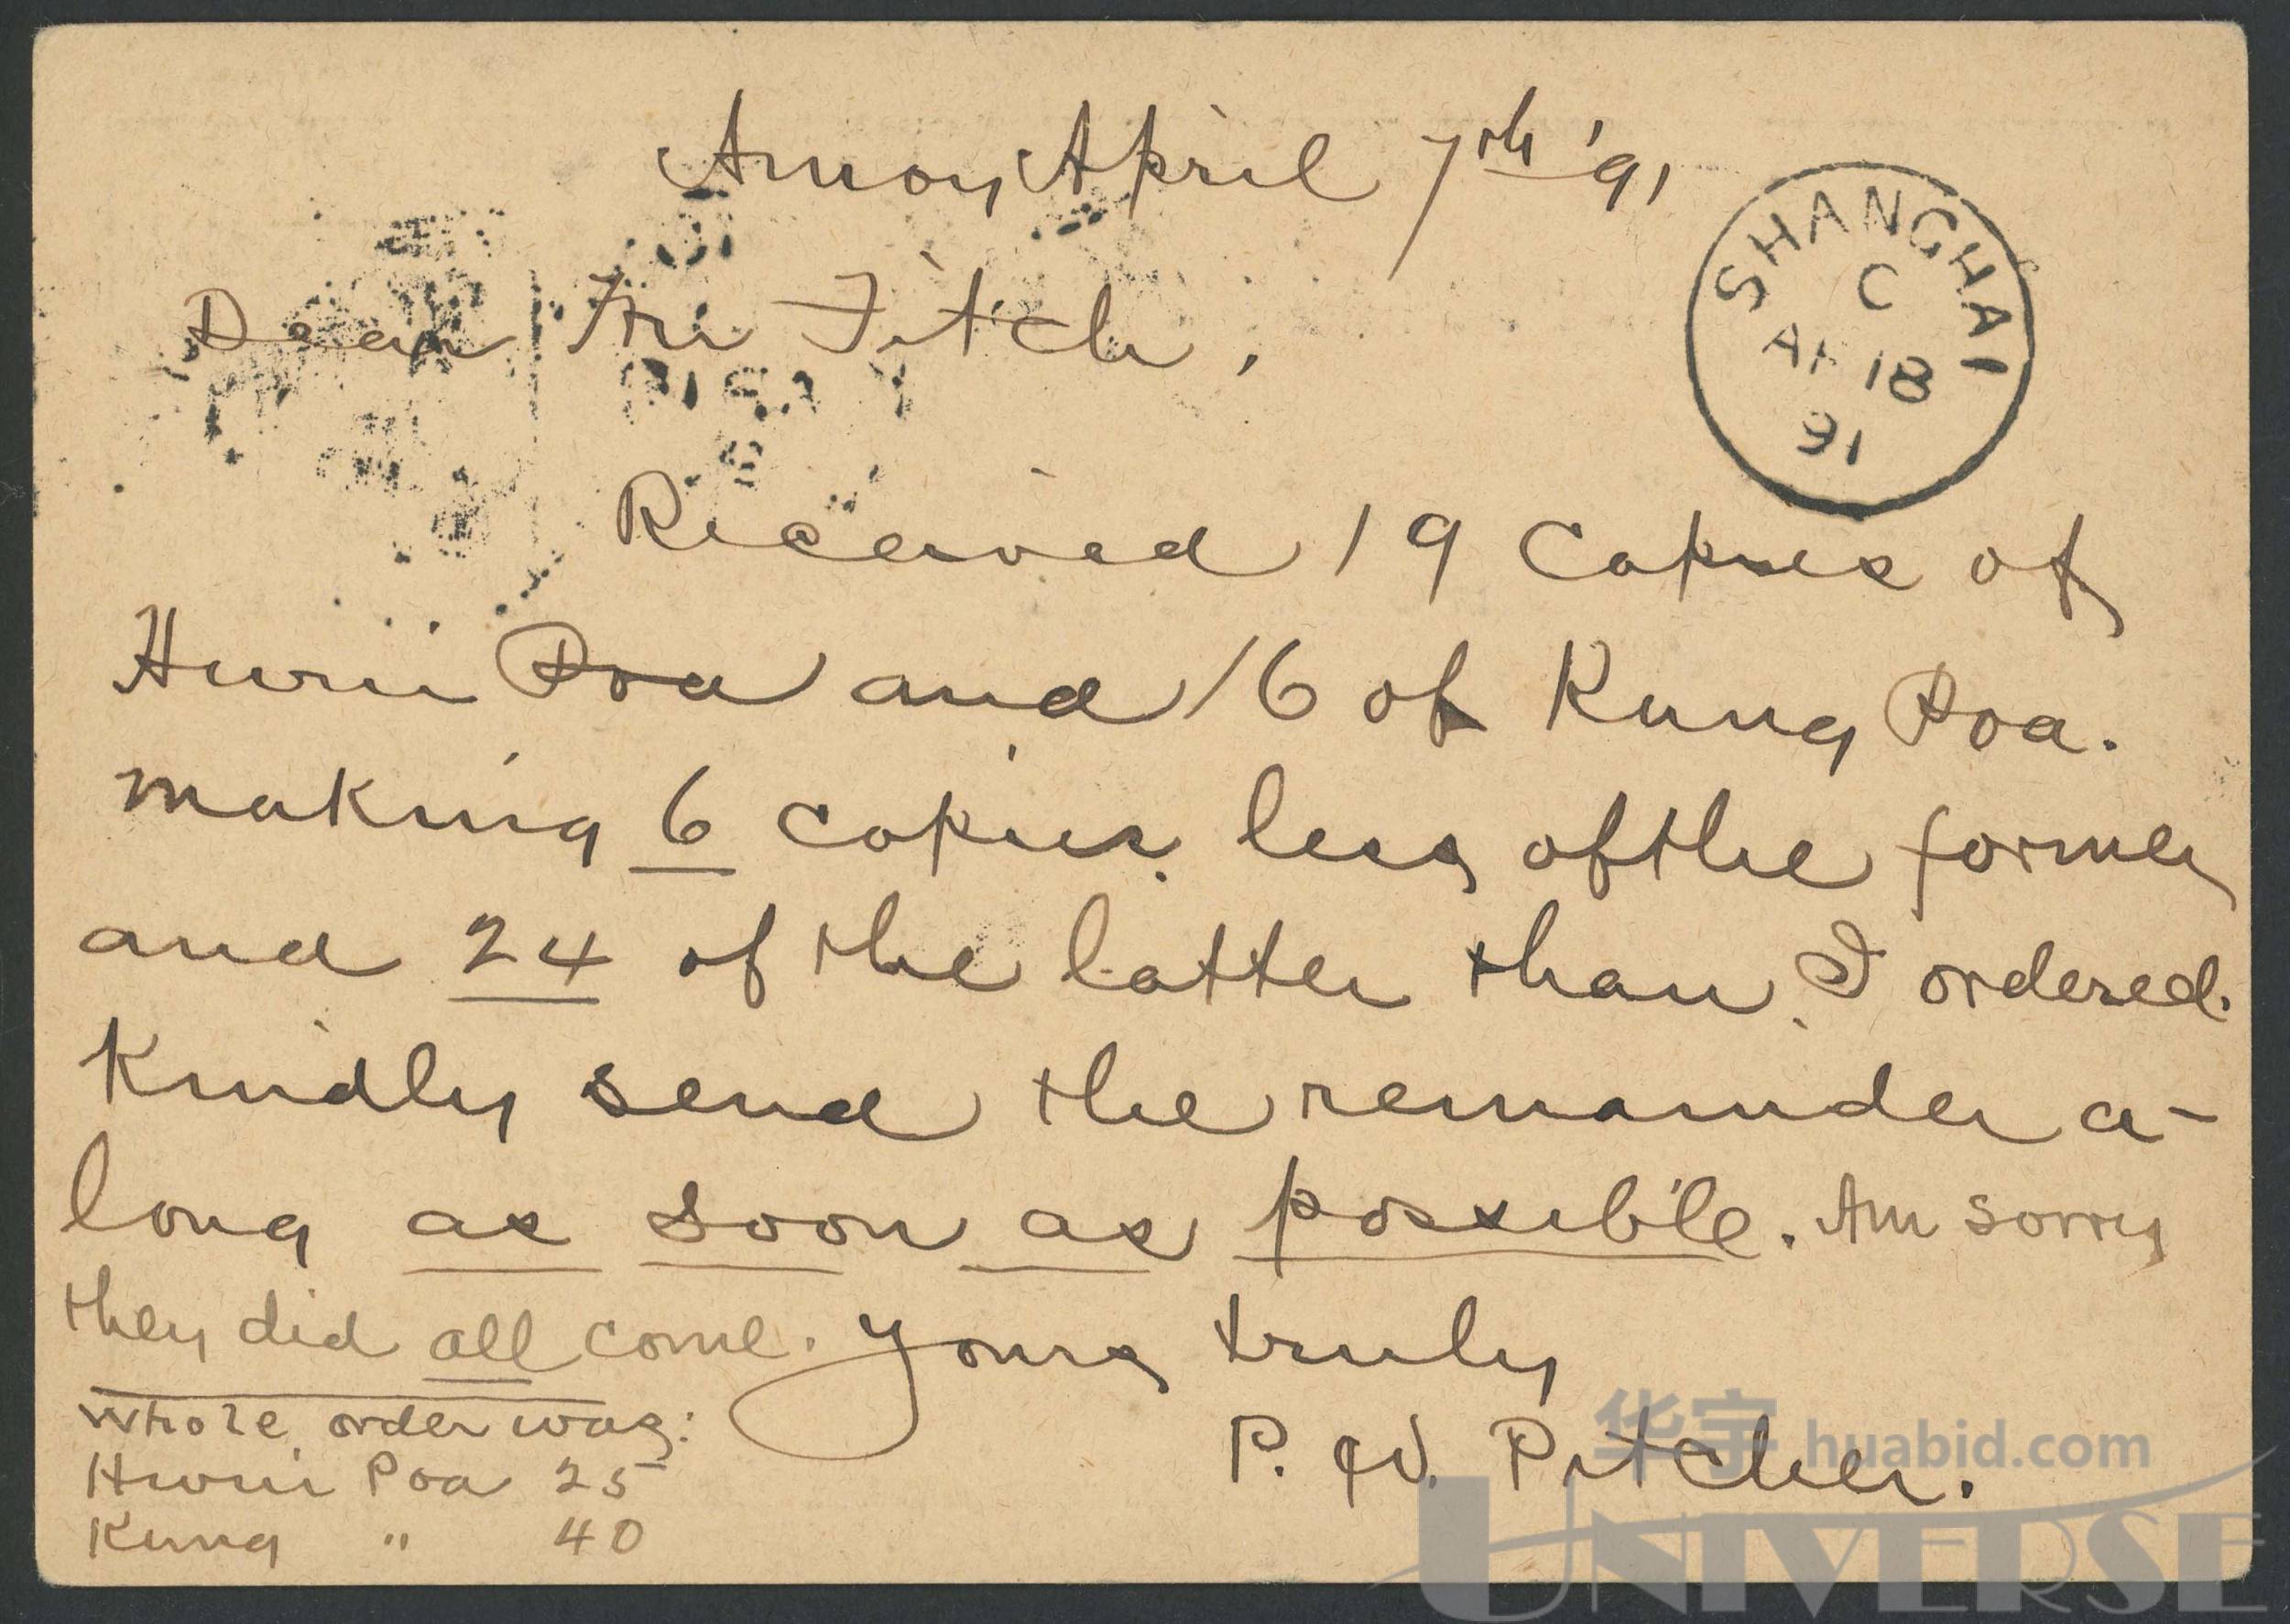 Amoy April 7th '91
Dear Mr Fitch,
Received 19 Copies of
Hwui Poa and 16 of Kung Poa.
making 6 copies less of the former
and 24 of the latter than I ordered.
Kindly send the remainder a-
long as soon as possible. Am sorry
they did all come. Yours truly
P. W. Pitcher.
Whole order was:
Hwui Poa 25
Kung " 40
SHANGHAI
C
AP 18
91
华宇 huabid.com
UNIVERSE